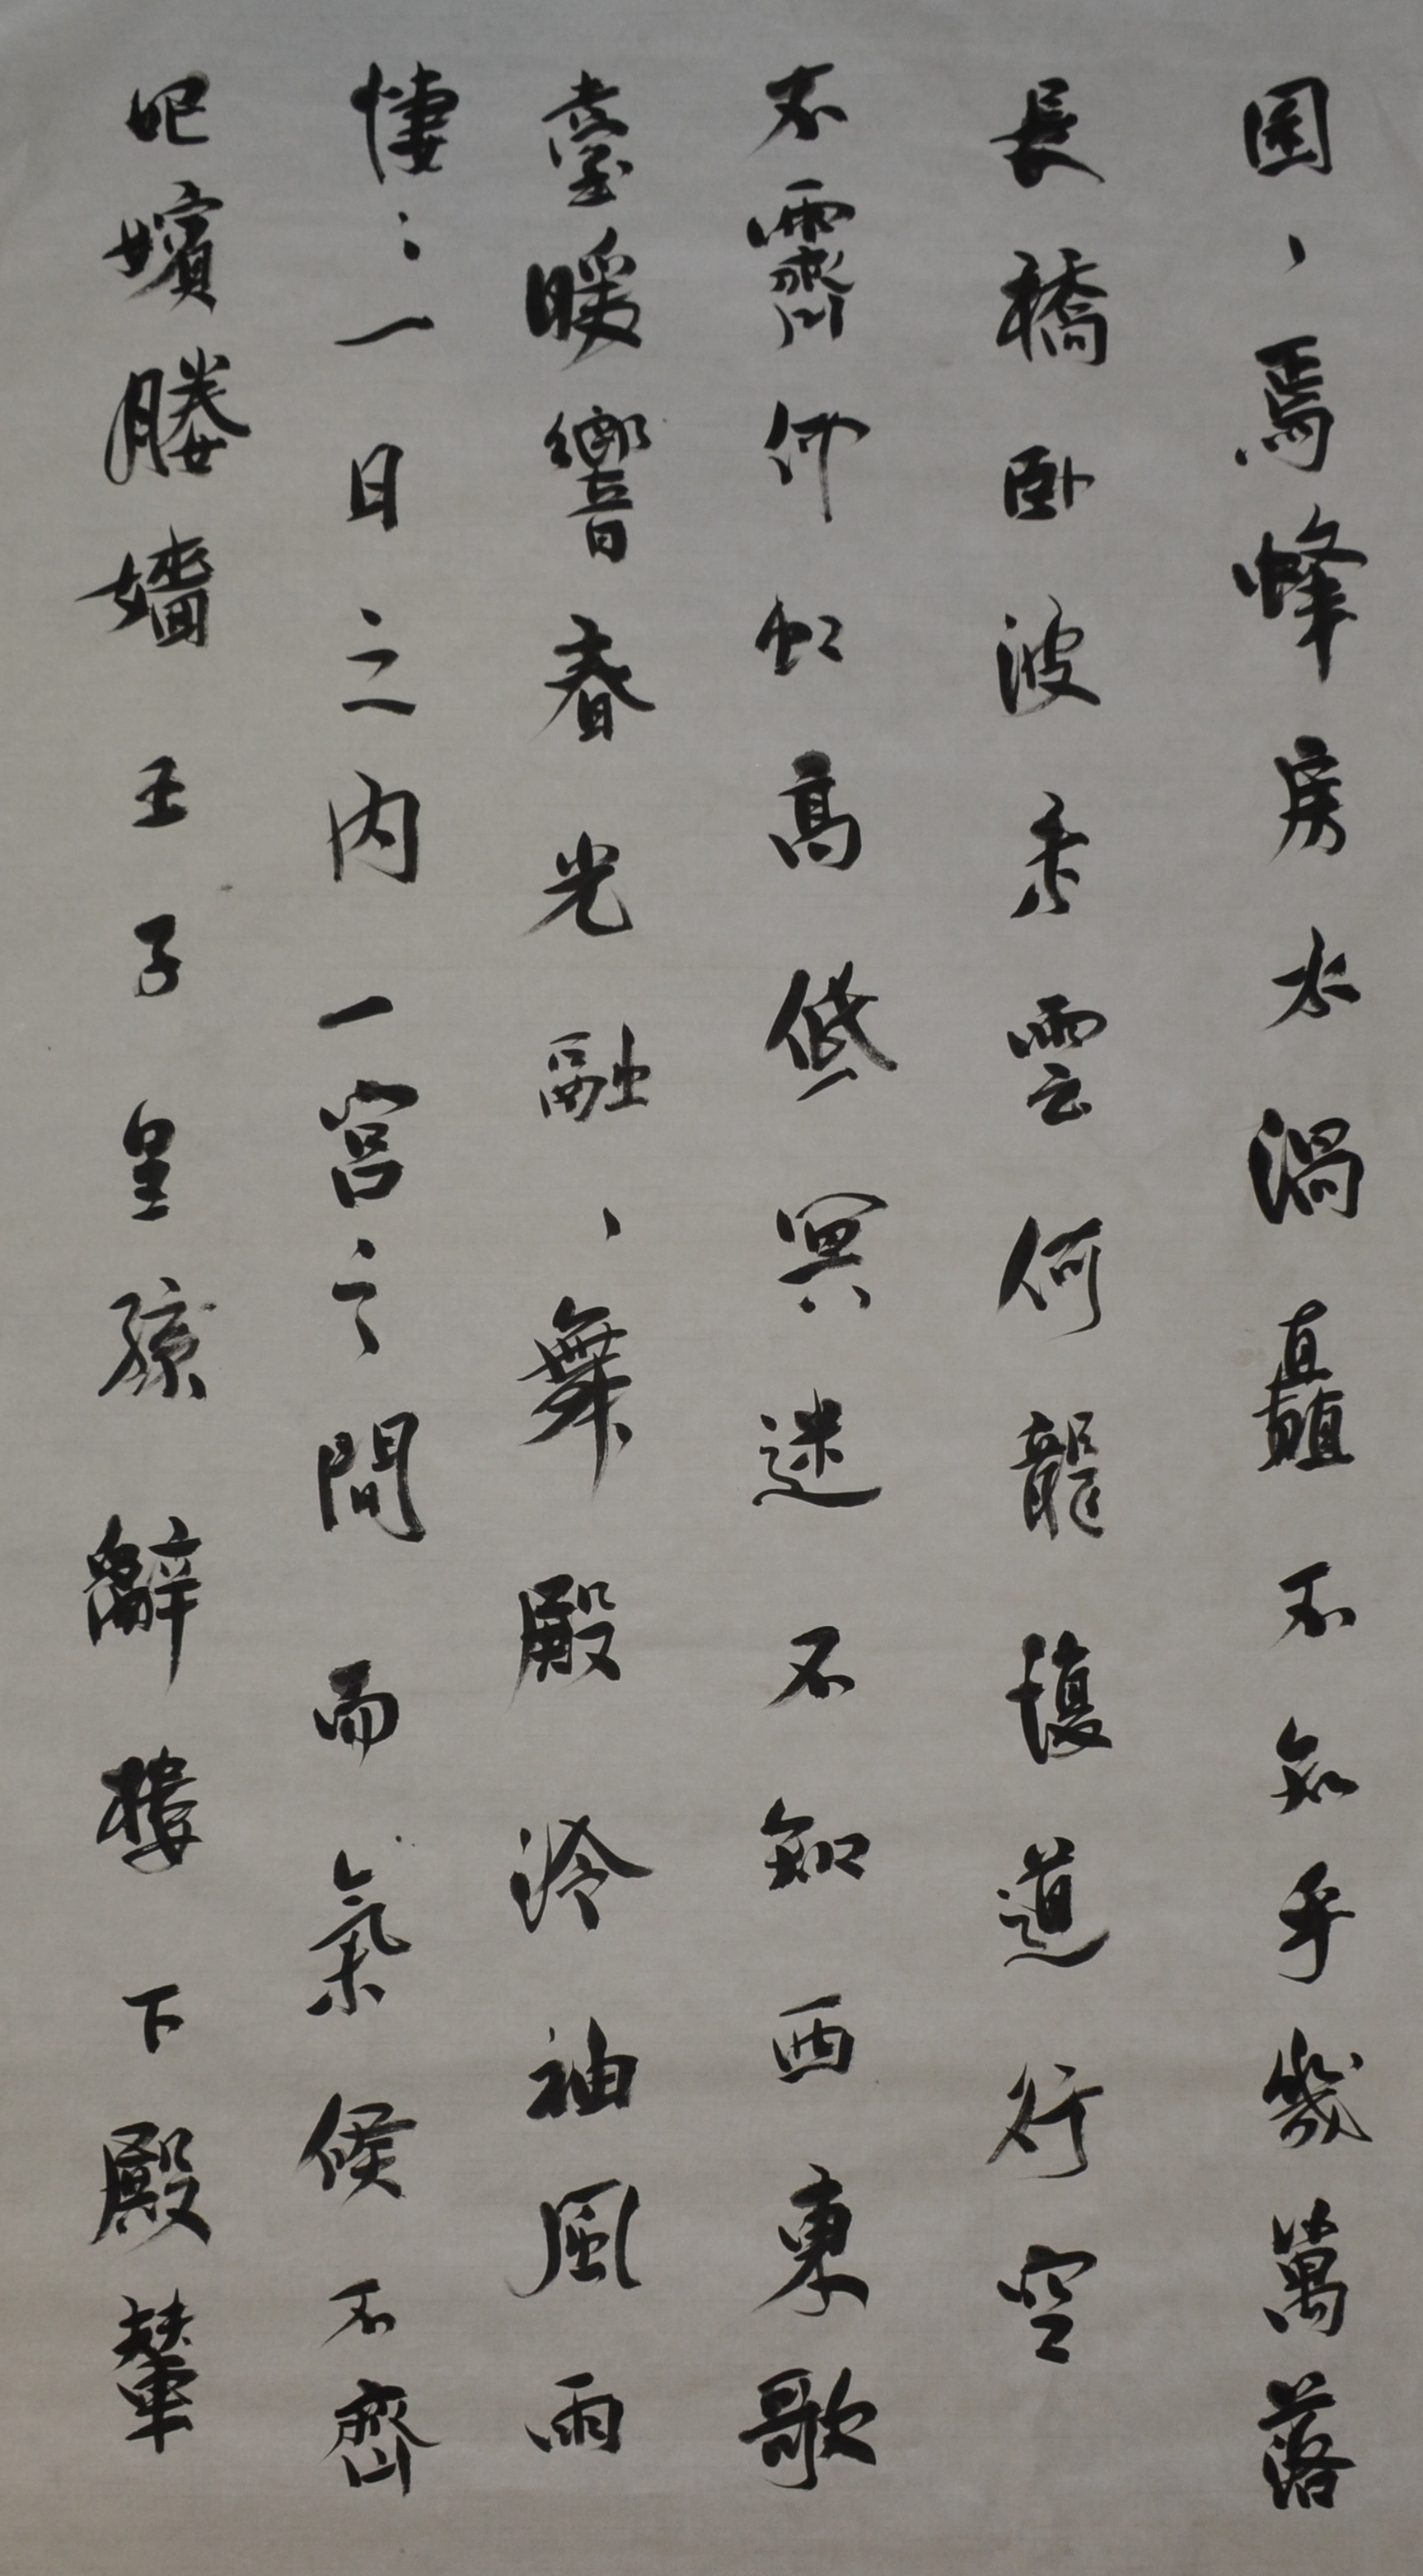 囷、焉蜂房水渦矗不知乎幾萬落
長橋卧波未雲何龍復道行空
不霽何虹高低冥迷不知西東歌
臺暖響春光融、舞殿冷袖風雨
悽：一日之內一宮之間而氣候不齊
妃嬪媵嬙王子皇孫辭樓下殿輦